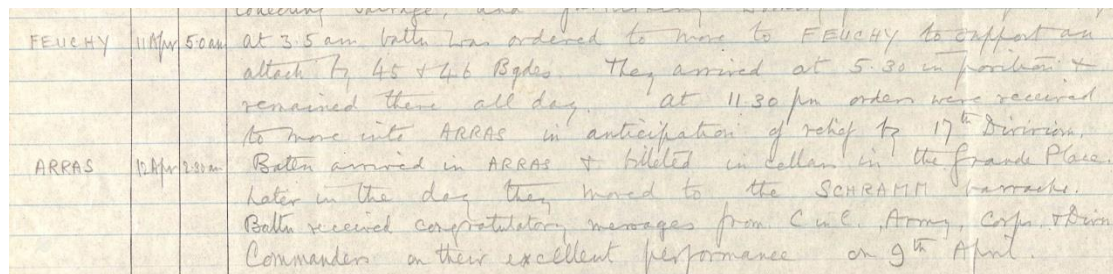 collecting salvage, and
FEUCHY 11 Apr 5.0am at 3.5 am battn was ordered to move to FEUCHY to support an
attack by 45 & 46 Bgdes. They arrived at 5.30 in position &
remained there all day. At 11.30 pm orders were received
to move into ARRAS in anticipation of relief by 17th Division.
ARRAS 12 Apr 2.30am Battn arrived in ARRAS & billeted in cellars in the Grande Place.
Later in the day they moved to the SCHRAMM barracks.
Battn received congratulatory messages from C in C, Army, Corps, & Divn
Commanders on their excellent performance on 9th April.